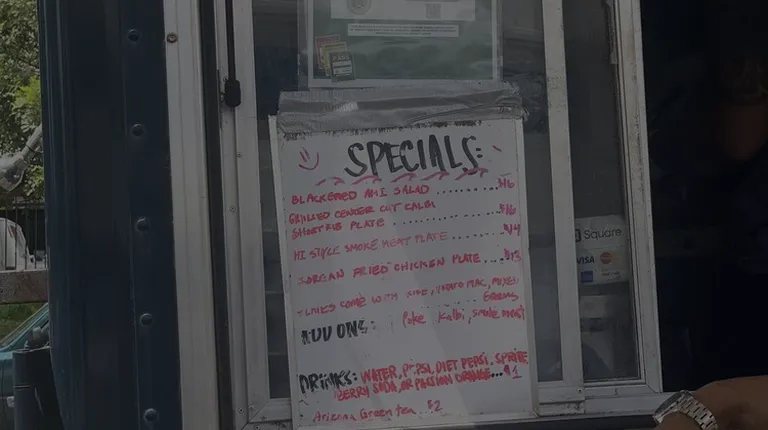 SPECIALS:
BLACKENED AHI SALAD ........ $16
GRILLED CENTER CUT CALBI
SHORT RIB PLATE ........ $16
HI STYLE SMOKE MEAT PLATE ........ $14
KOREAN FRIED CHICKEN PLATE .... $13
COME WITH RICE, MAC, MIXED
GREENS
ADD ONS: Poke, Kalbi, smoke meat
DRINKS: WATER, PEPSI, DIET PEPSI, SPRITE,
BERRY SODA, OR PASSION ORANGE... $1
Arizona Green tea $2
Square
VISA